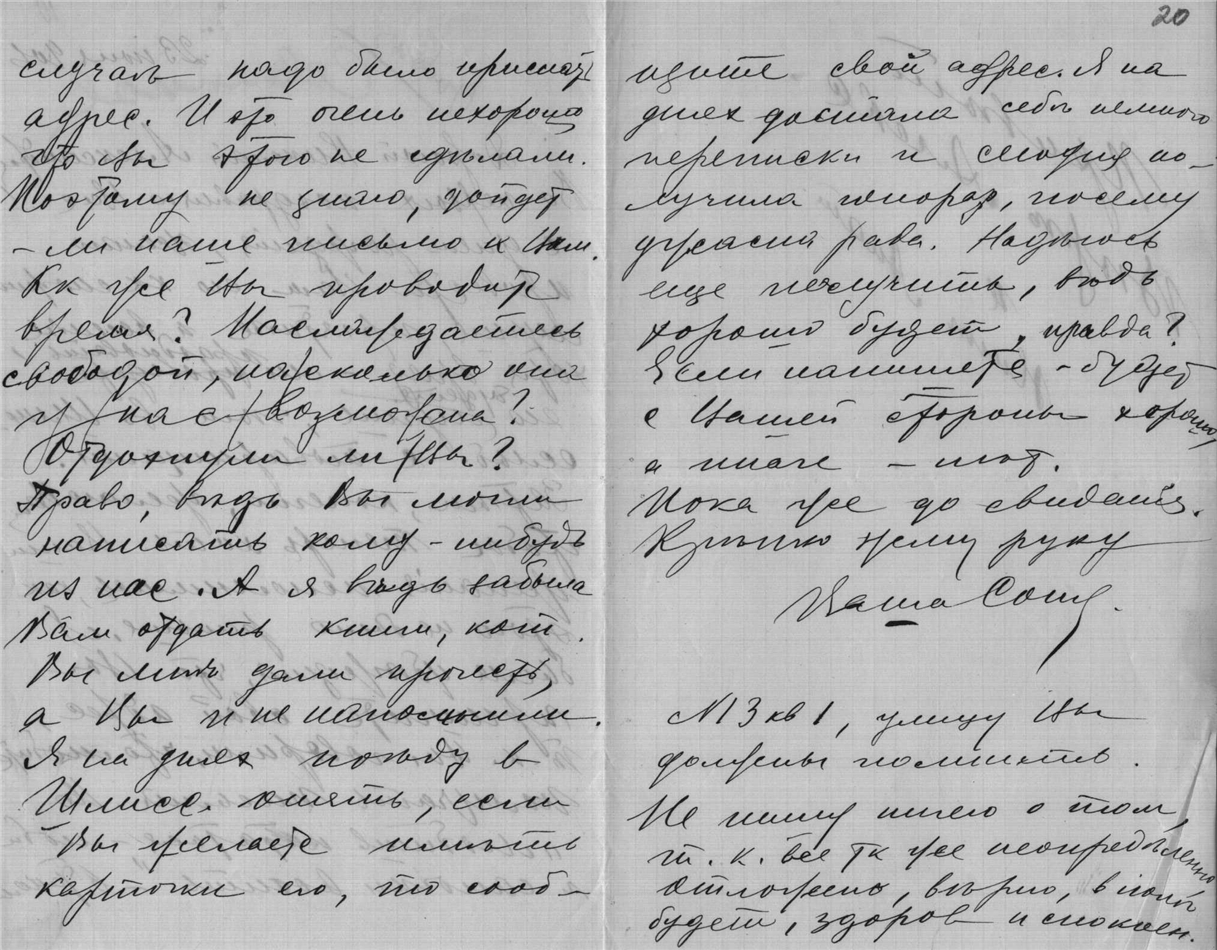 20
случаѣ надо было прислать
адрес. И это очень нехорошо
что Вы этого не сдѣлали.
Поэтому не знаю, дойдет
– ли наше письмо к Вам.
Кк же Вы проводите
время? Наслаждаетесь
свободой, насколько она
у нас возможна?
Отдохнули ли Вы?
Право, вѣдь Вы могли
написать кому-нибудь
из нас. А я вѣдь забыла
Вам отдать книги, кот.
Вы мнѣ дали прочесть,
а Вы и не напомнили.
Я на днях поѣду в
Шлисс. опять, если
Вы желаете имѣть
карточки его, то сооб–
щите свой адрес. Я на
днях достала себѣ немного
переписки и сегодня по–
лучила гонорар, посему
ужасно рада. Надѣюсь
еще получить, вѣдь
хорошо будет, правда?
Если напишете – будет
с Вашей стороны хорошо,
а иначе – нѣт.
Пока же до свиданія.
Крѣпко жму руку
Ваша Соня.
N13 кв 1, улицу Вы
должны помнить.
Не пишу ничего о том,
т. к. все тк же неопредѣленно
отложено, вѣрно, в іюлѣ
будет, здоров и спокоен.